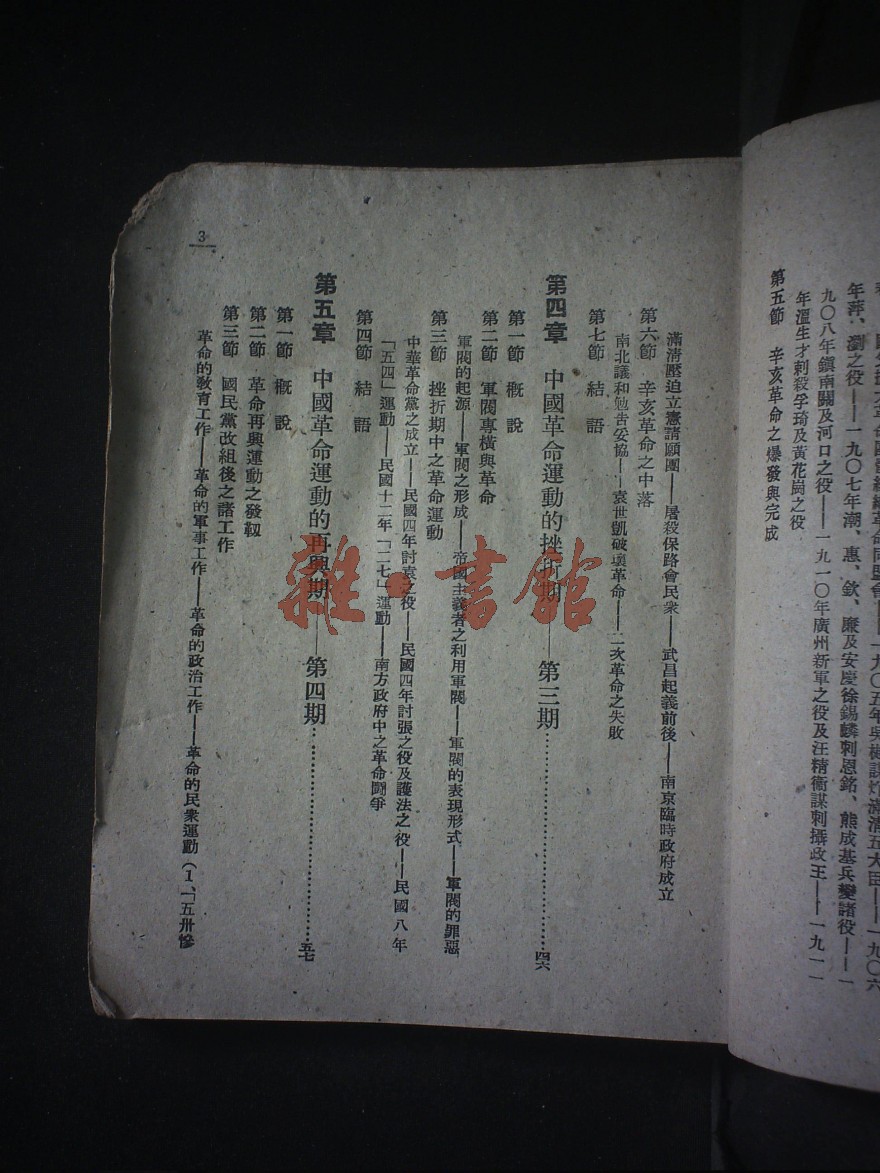 年萍、瀏之役——一九〇七年潮、惠、欽、廉及安慶徐錫麟刺恩銘、熊成基兵變諸役——一
九〇八年鎮南關及河口之役——一九一〇年廣州新軍之役及汪精衞謀刺攝政王——一九一一
年溫生才刺殺孚琦及黃花崗之役
第五節 辛亥革命之爆發與完成
滿清壓迫立憲請願團——屠殺保路會民衆——武昌起義前後——南京臨時政府成立
第六節 辛亥革命之中落
南北議和勉吿妥協——袁世凱破壞革命——二次革命之失敗
第七節 結語
第四章 中國革命運動的挫折期——第三期……四六
第一節 概說
第二節 軍閥專橫與革命
軍閥的起源——軍閥之形成——帝國主義者之利用軍閥——軍閥的表現形式——軍閥的罪惡
第三節 挫折期中之革命運動
中華革命黨之成立——民國四年討袁之役——民國四年討張之役及護法之役——民國八年
「五四」運動——民國十二年「二七」運動——南方政府中之革命鬪爭
第四節 結語
第五章 中國革命運動的再興期——第四期……五七
第一節 概說
第二節 革命再興運動之發軔
第三節 國民黨改組後之諸工作
革命的敎育工作——革命的軍事工作——革命的政治工作——革命的民衆運動(1、「五卅慘
3
雜·書館